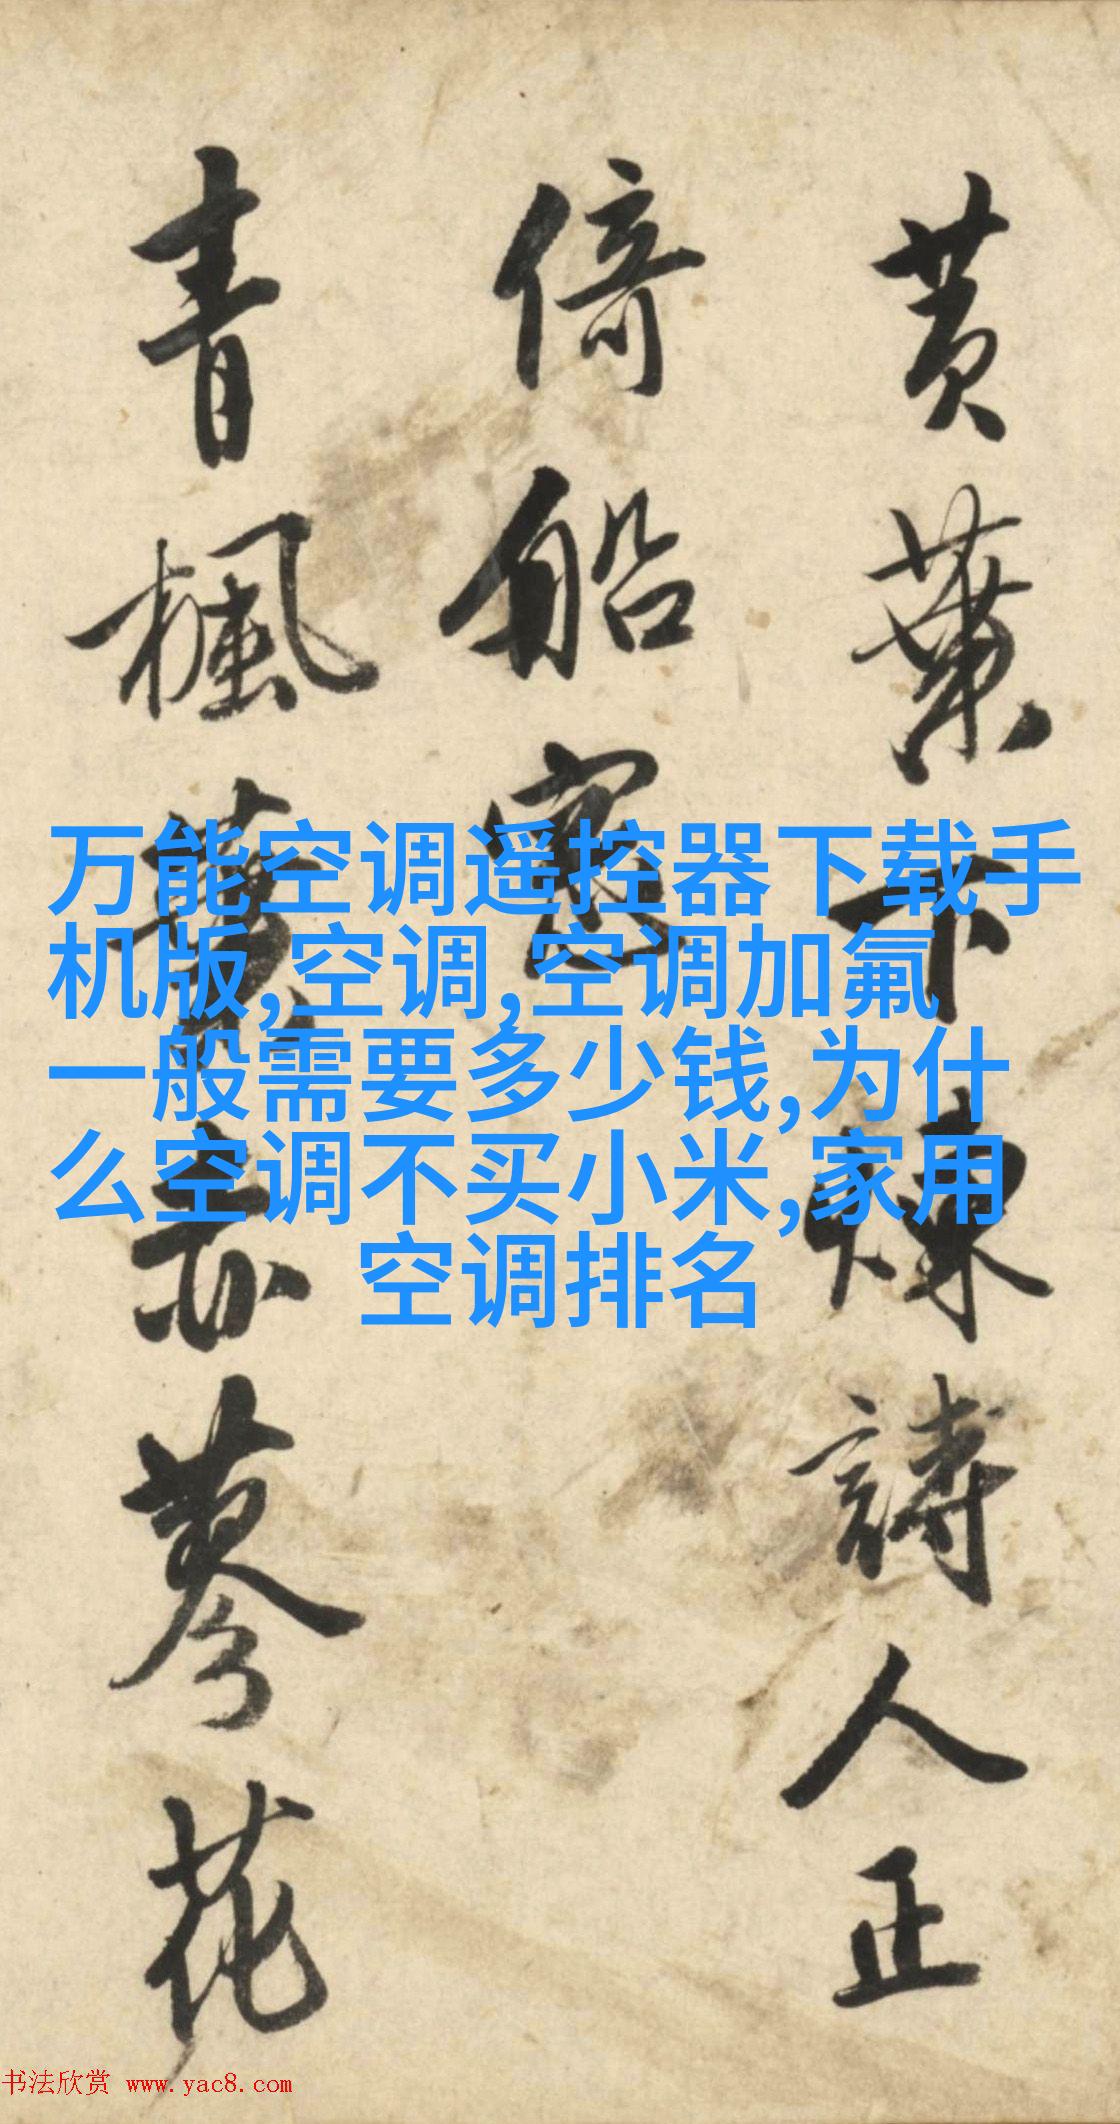 黄葉下煉詩人正
倚船窓
青楓赤蓼花
万能空调遥控器下载手
机版,空调,空调加氟
一般需要多少钱,为什
么空调不买小米,家用
空调排名
书法欣赏 www.yac8.com